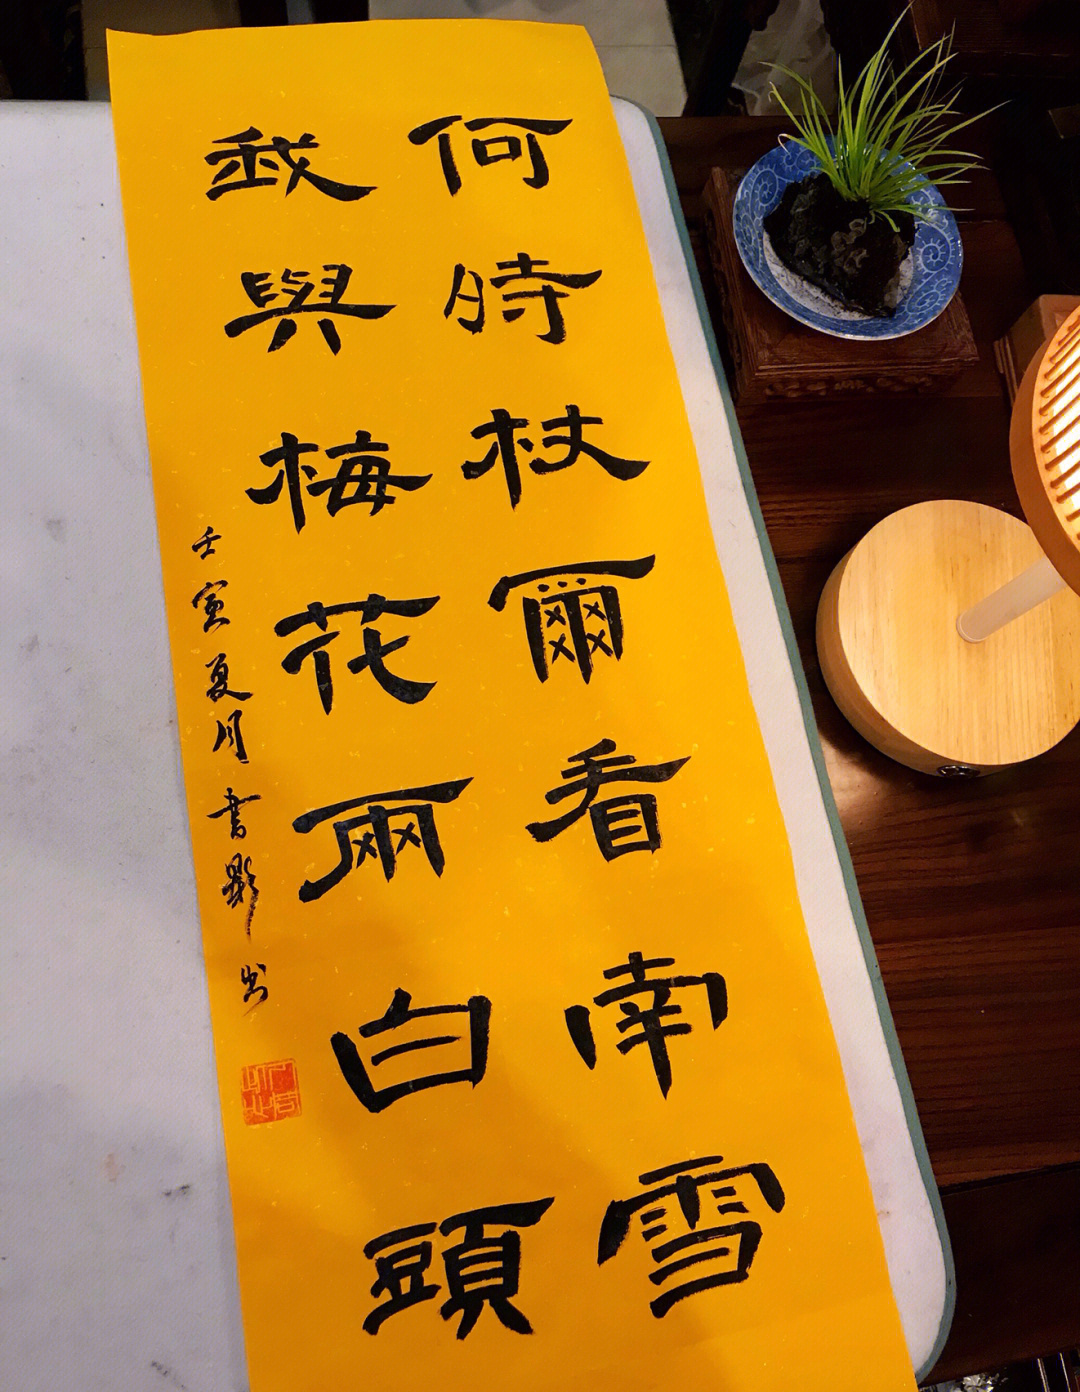 何時杖爾看南雪
我與梅花兩白頭
壬寅夏月書影